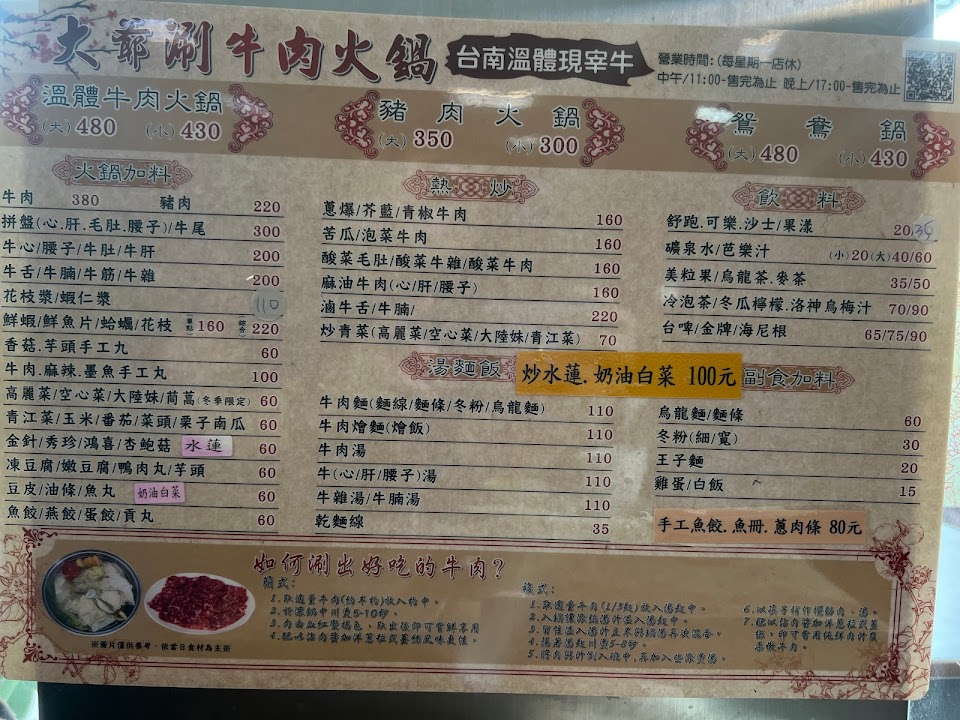 大爺涮牛肉火鍋
台南溫體現宰牛
營業時間:(每星期一店休)
中午/11:00-售完為止 晚上/17:00-售完為止
溫體牛肉火鍋
(大) 480 (小) 430
豬肉火鍋
(大) 350 (小) 300
鴛鴦鍋
(大) 480 (小) 430
火鍋加料
牛肉 380 豬肉 220
拼盤(心.肝.毛肚.腰子)/牛尾 300
牛心/腰子/牛肚/牛肝 200
牛舌/牛腩/牛筋/牛雜 200
花枝漿/蝦仁漿 110
鮮蝦/鮮魚片/蛤蠣/花枝 160 220
香菇.芋頭手工丸 60
牛肉.麻辣.墨魚手工丸 100
高麗菜/空心菜/大陸妹/茼蒿(冬季限定) 60
青江菜/玉米/番茄/菜頭/栗子南瓜 60
金針/秀珍/鴻喜/杏鮑菇 水蓮 60
凍豆腐/嫩豆腐/鴨肉丸/芋頭 60
豆皮/油條/魚丸 奶油白菜 60
魚餃/燕餃/蛋餃/貢丸 60
熱炒
蔥爆/芥藍/青椒牛肉 160
苦瓜/泡菜牛肉 160
酸菜毛肚/酸菜牛雜/酸菜牛肉 160
麻油牛肉(心/肝/腰子) 160
滷牛舌/牛腩/ 220
炒青菜(高麗菜/空心菜/大陸妹/青江菜) 70
湯麵飯
炒水蓮.奶油白菜 100元
牛肉麵(麵線/麵條/冬粉/烏龍麵) 110
牛肉燴麵(燴飯) 110
牛肉湯 110
牛(心/肝/腰子)湯 110
牛雜湯/牛腩湯 110
乾麵線 35
飲料
舒跑.可樂.沙士/果漾 20 35
礦泉水/芭樂汁 (小)20(大)40/60
美粒果/烏龍茶.麥茶 35/50
冷泡茶/冬瓜檸檬.洛神烏梅汁 70/90
台啤/金牌/海尼根 65/75/90
副食加料
烏龍麵/麵條 60
冬粉(細/寬) 30
王子麵 20
雞蛋/白飯 15
手工魚餃.魚冊.蔥肉條 80元
如何涮出好吃的牛肉?
※圖片僅供參考，依當日食材為主※